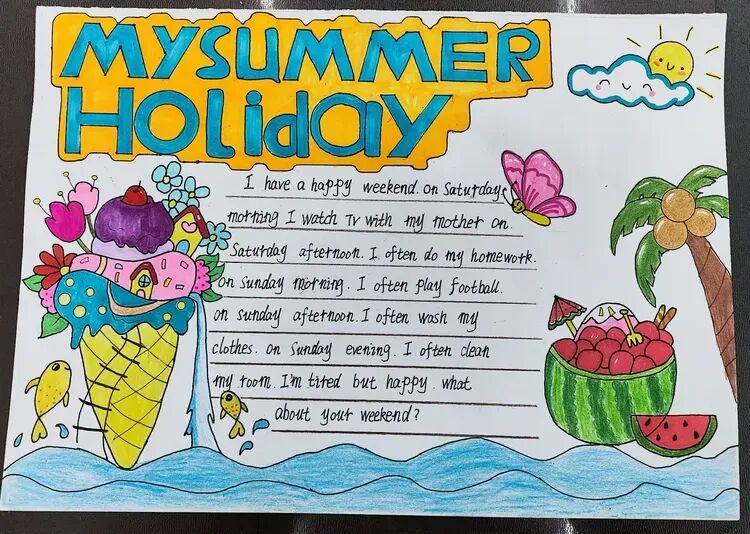 MY SUMMER
HOLidAY
I have a happy weekend. on Saturdays
morning I watch TV with my mother on.
Saturday afternoon. I often do my homework.
on sunday morning. I often play football.
on sunday afternoon. I often wash my
clothes. on Sunday evening. I often clean
my room. I'm tired but happy. what
about your weekend?